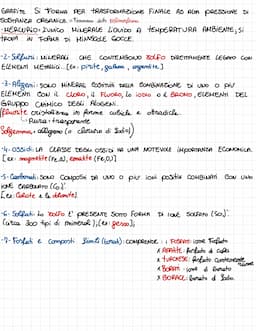 GRAFITE SI FORMA PER TRASFORMAZIONE FINALE AD ALTA PRESSIONE DI
SOSTANZA ORGANICA
-MERCURIO: UNICO MINERALE LIQUIDO A TEMPERATURA AMBIENTE, SI
TROVA IN FORMA DI MINUSCOLE GOCCE.
-2- Solfuri: MINERALI CHE CONTENGONO ZOLFO DIRETTAMENTE LEGATO CON
ELEMENTI METALLICI. [Es. pirite, galena, argentite]
-3- Alogeni: SONO MINERALI COSTITUITI DALLA COMBINAZIONE DI UNO O PIÙ
ELEMENTI CON IL CLORO, IL FLUORO, LO IODIO O IL BROMO, ELEMENTI DEL
GRUPPO CHIMICO DEGLI ALOGENI.
Fluorite cristallizza in forme cubiche e ottaedriche.
Pura: trasparente
Salgemma, alogeno (o cloruro di Sodio)
-4- OSSIDI: LA CLASSE DEGLI OSSIDI HA UNA NOTEVOLE IMPORTANZA ECONOMICA.
[es. magnetite (Fe₃O₄), ematite (Fe₂O₃)]
-5- Carbonati: SONO COMPOSTI DA UNO O PIÙ IONI POSITIVI COMBINATI CON UNO
IONE CARBONATO (CO₃)
[es. Calcite e la dolomite]
-6- Solfati: LO ZOLFO È PRESENTE SOTTO FORMA DI IONE SOLFATO (SO₄).
(circa 300 tipi di minerali), [es: gesso];
-7- Fosfati e composti Simili (borati): COMPRENDE: FOSFATI: ione fosfato
× APATITE: fosfato di calcio
× TURCHESE: fosfato contenente
× BORATI: ione di borato
× BORACE: borato di Sodio.